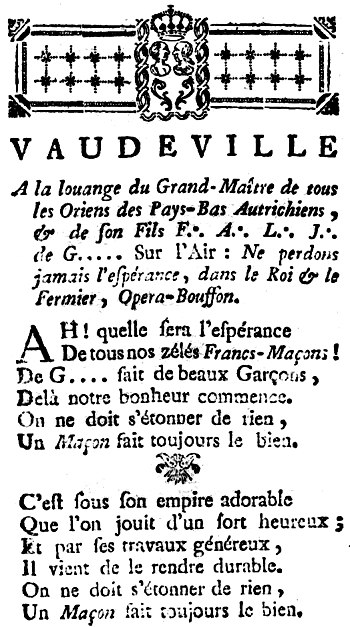 VAUDEVILLE
A la louange du Grand-Maître de tous
les Oriens des Pays-Bas Autrichiens,
& de ſon Fils F∴ A∴ L∴ J∴
de G..... Sur l'Air : Ne perdons
jamais l'eſpérance, dans le Roi & le
Fermier, Opera-Bouffon.
AH! quelle ſera l'eſpérance
De tous nos zélés Francs-Maçons!
De G.... fait de beaux Garçons,
Delà notre bonheur commence.
On ne doit s'étonner de rien,
Un Maçon fait toujours le bien.
C'eſt ſous ſon empire adorable
Que l'on jouit d'un ſort heureux;
Et par ſes travaux généreux,
Il vient de le rendre durable.
On ne doit s'étonner de rien,
Un Maçon fait toujours le bien.